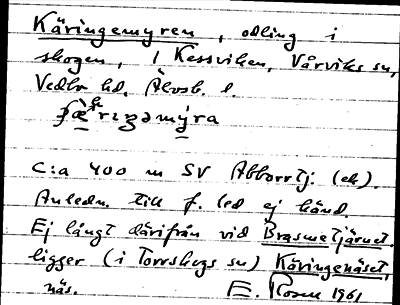 Käringemyren, odling i
skogen, i Kessviken, Vårviks sn,
Vedbo hd, Älvsb. l.
C:a 400 m SV Abborrtj. (ek).
Anledn. till f. led ej känd.
Ej långt därifrån vid Brasmetjärnet
ligger (i Torrskogs sn) Käringenäset,
näs. E. Rosen 1961